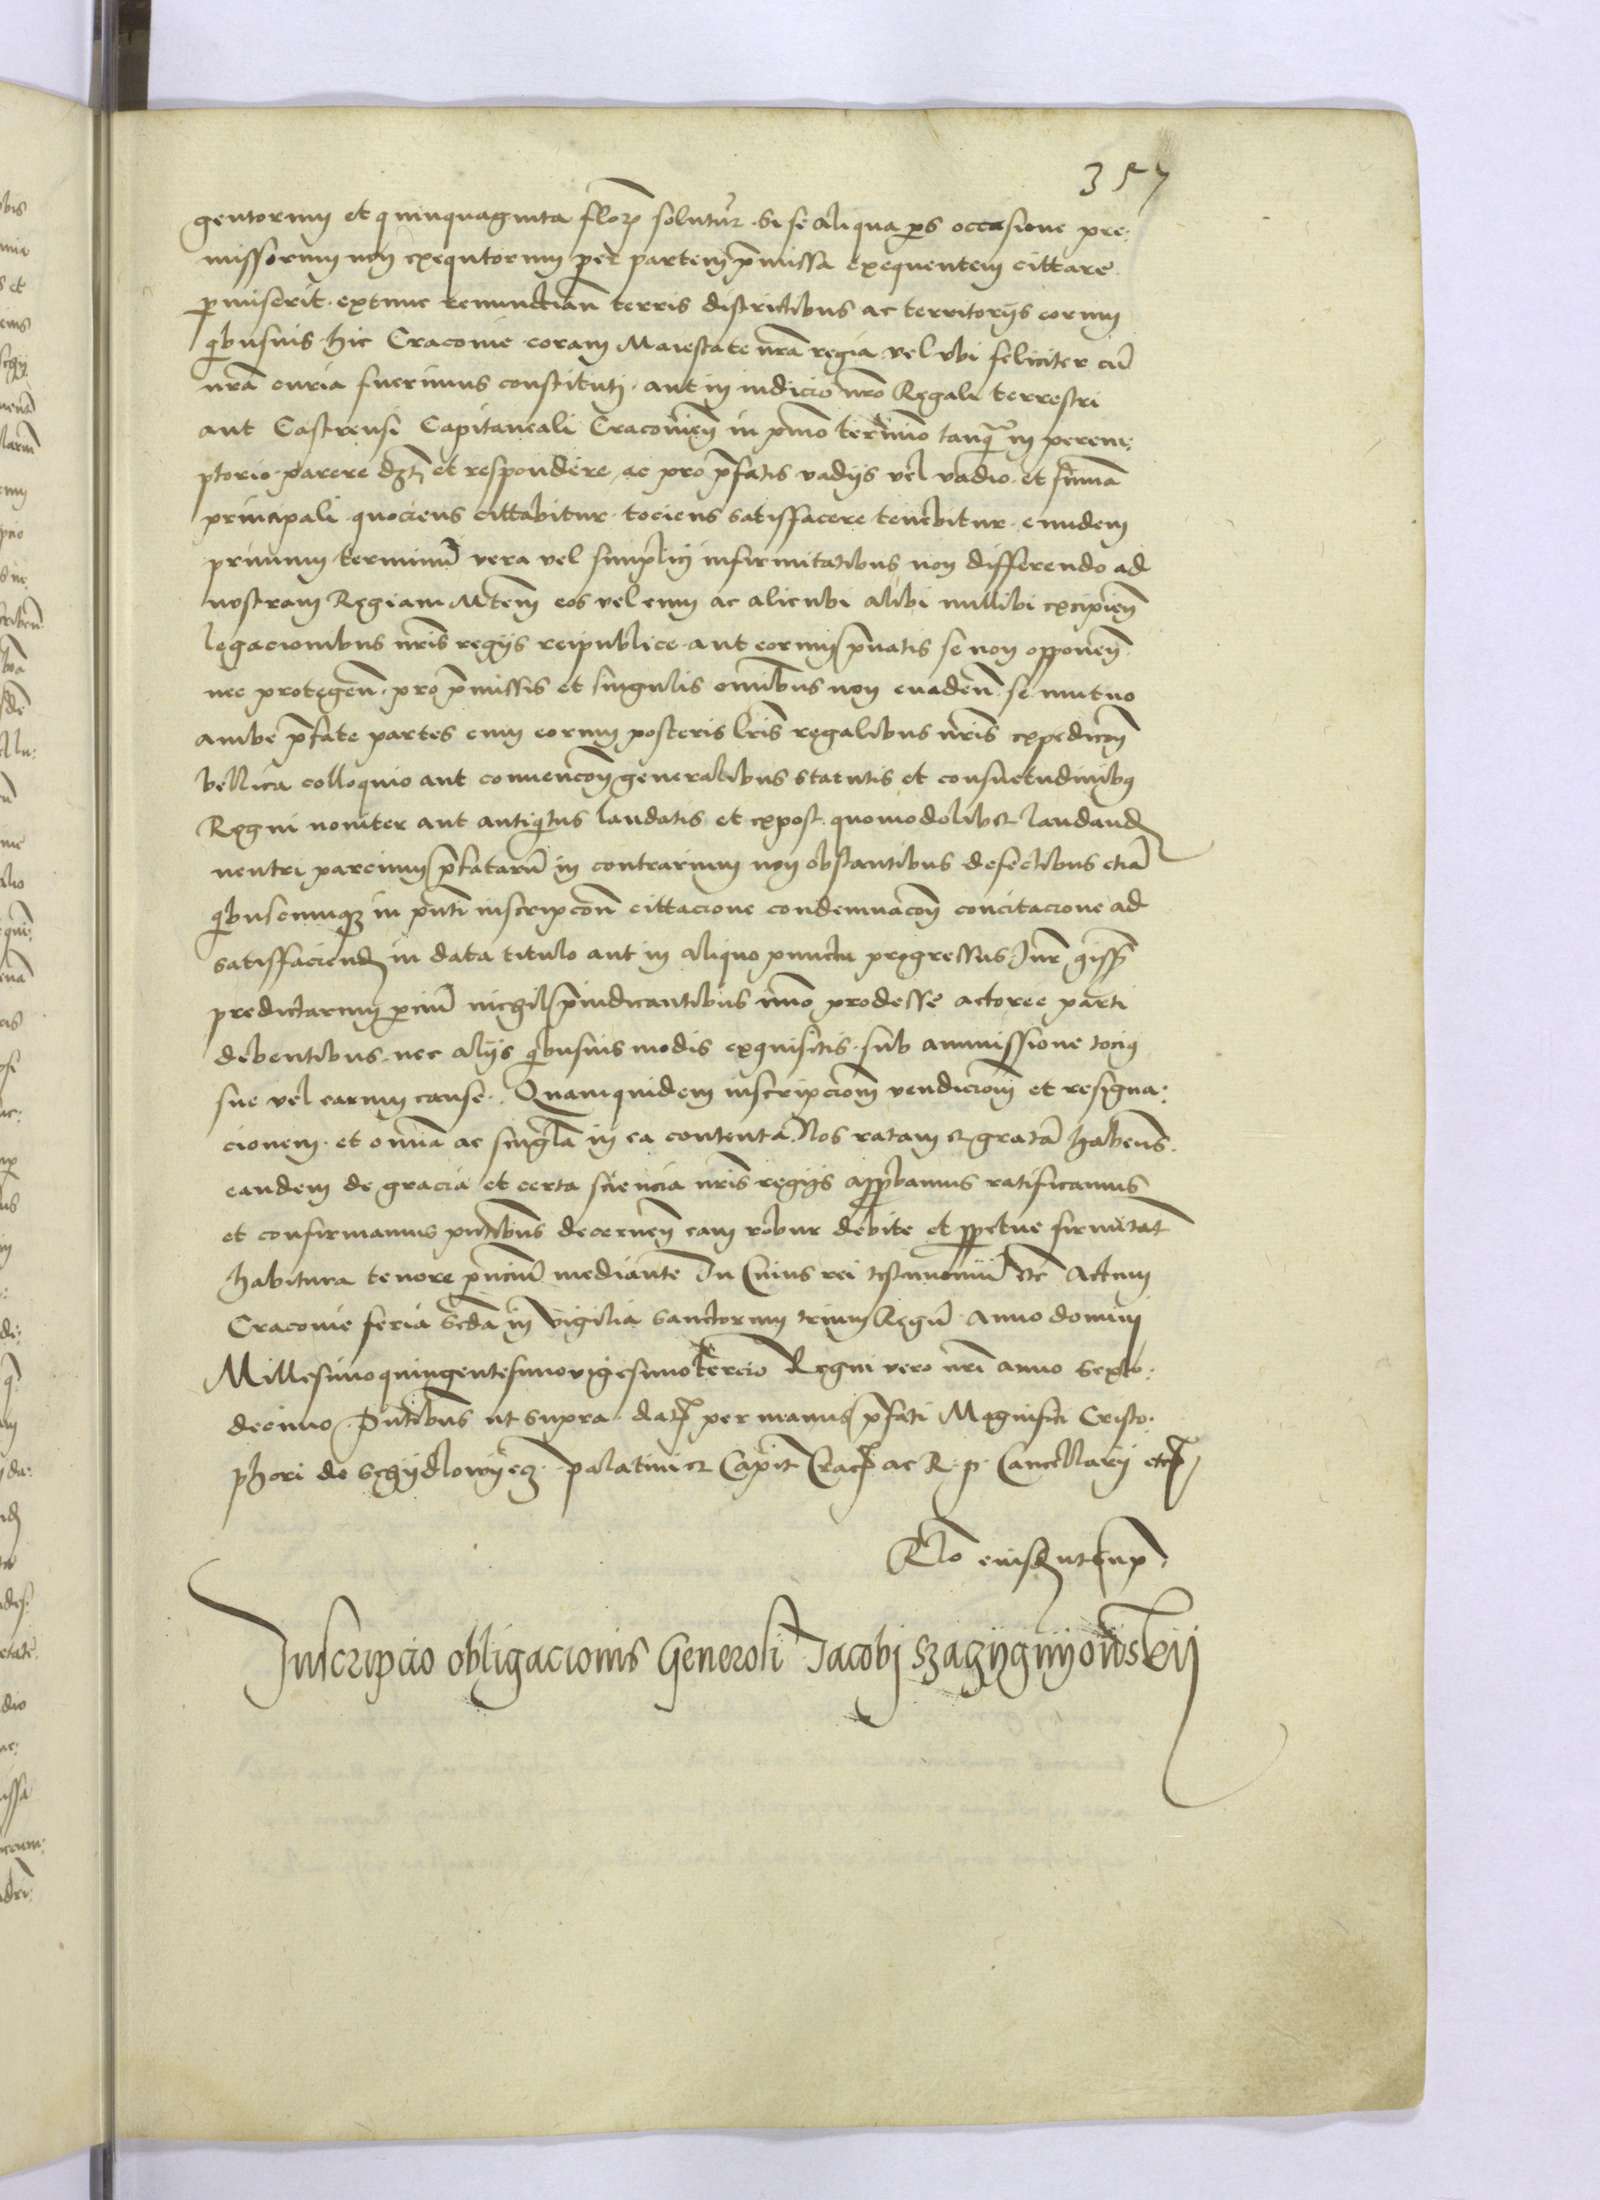 357
gentorum et quinquaginta floꝝ solutur̃. Si se aliqua ꝑs occasione pre:
missorum non exequtorum per partem p̃missa exequentem cittare
ꝑmiserit. extunc renuncciañ terris districtibus ac territorÿs eorum
qͥbusuis. hic Cracouie coram Maiestate nr̃a regia vel vbi feliciter cũ
nr̃a curia fuerimus constituti. aut in iudicio nr̃o Regali terrestri
aut Castrensi Capitaneali Cracouieñ in pͥmo termino tanqᷓ in perem:
ptorio. parere et respondere ac pro p̃fatis vadÿs vel vadio et sum̃a
principali quociens cittabitur. tociens satisfacere tenebitur. eundem
primum terminũ vera vel simplici infirmitatibus non differendo ad
nostram Regiam Mtem̃ eos vel eum ac alicubi alibi nullibi excipieñ
legacionibus nr̃is regÿs reipublice aut eorum pͥuatis se non opponeñ
nec protegeñ. pro p̃missis et singulis om̃ibus non euadeñ se mutuo
ambe p̃fate partes cum eorum posteris lr̃is regalibus nr̃is expedicoñ
bellica colloquio aut conuencoñ generalibus statutis et consuetudinibꝰ
Regni nouiter aut antiqͥtus laudatis et expost quomodolibet laudanđ
neutri parcium p̃fatarũ in contrarium non obstantibus defectibus etiã
qͥbuscumqꝫ in pn̄ti inscripcoñ cittacione condemnacoñ concitacione ad
satisfacienđ in data titulo aut in aliquo puncto progressus Jur̃
predictarum ꝑciũ nichil p̃iudicantibus im̃o prodesse actoree parti
debentibus. nec alÿs qͥbusuis modis exquisitis. sub ammissione tociꝰ
sue vel earum cause. Quamquidem inscripcioñ vendicioñ et resigna:
cionem. et om̃ia ac singl̃a in ea contenta. Nos ratam et gratã habeñs.
eandem de gracia et certa sciencia nr̃is regÿs appꝓbamus ratificamus
et confirmamus pn̄tibus decerneñ eam robur debite et ꝑpetue firmitat̃
habitura tenore pn̄ciũ mediante In Cuius rei testimoniũ etc̃ Actum
Cracouie feria scđa in vigilia sanctorum trium Regũ. Anno domini
Millesimoquingentesimovigesimotercio Regni vero nr̃i anno sexto:
decimo. Pn̄tibus ut supra. dať per manus p̃fati Magnifici Cristo:
phori de Schÿdlowÿecz. palatini et Capit̃ Crač ac R. p. Cancellarÿ etc̃
Rl̃o eiusđ ut sup̃.
Inscripcio obligacionis Generosi Jacobi Szaczÿgnÿowskÿ